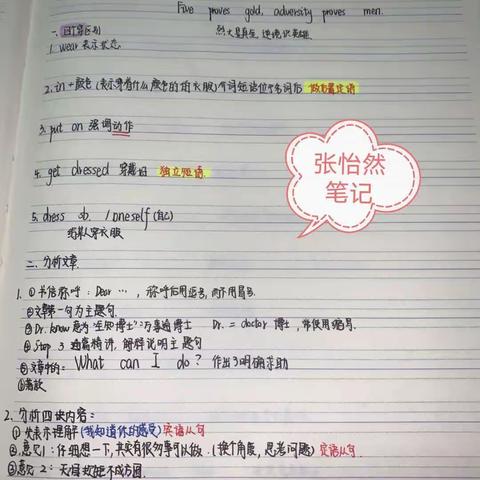 Five proves gold, adversity proves men.
烈火显真金,逆境识英雄.
一. 四个穿区别
1. wear 表示状态
2. in + 颜色 (表示穿有什么颜色的衣服) 介词短语位于名词后 做后置定语
3. put on 强调动作
4. get dressed 穿戴好 独立短语.
5. dress sb. / oneself (自己)
给某人穿衣服
张怡然
笔记
二. 分析文章.
1. ① 书信称呼: Dear …, 称呼后用逗号, 而不用冒号.
②文章第一句为主题句.
③Dr. know 意为"全知博士"、万事通博士 Dr. = doctor 博士, 常使用缩写.
④ Step 3 通篇精讲, 解释说明主题句
⑤文章中的: What can I do? 作出了明确求助
⑥落款
2. 分析四块内容:
① 先表示理解 (我知道你的感受) 宾语从句
②意见1: 仔细想一下, 其实有很多事可以做. (换个角度, 思考问题) 宾语从句.
③意见2: 无规矩不成方圆.